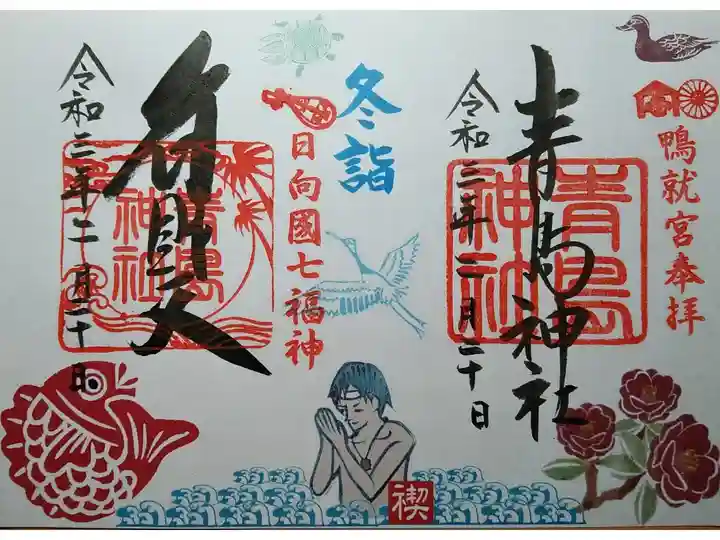 鴨就宮奉拝
青島神社
青島
神社
令和三年二月二十日
冬詣
日向國七福神
弁財天
青島
神社
令和三年二月二十日
禊